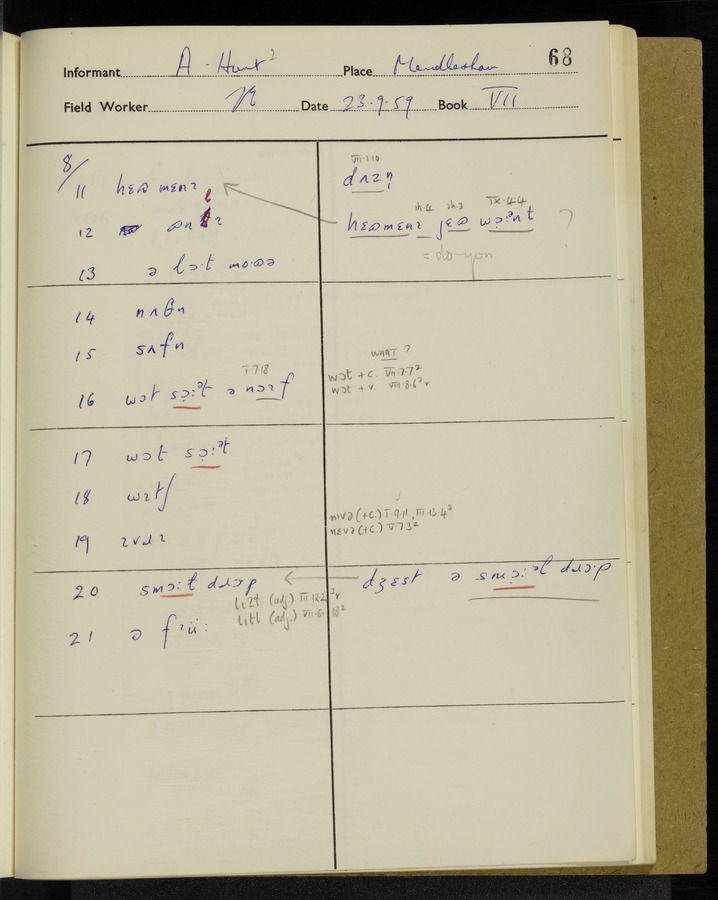 68
Informant A. Hunt² Place Mendlesham
Field Worker Date 23.9.59 Book VII
8/
11 hɛɷ mɛnɪ
12
13 ə lɔ·t mo·ɷə
14 nʌθn
15 sʌfn
16 wɔt sɔ̣:ᵊt ə
I.7.18
17 wɔt sɔ̣:ᵊt
18 wɪtʃ
19
20 smɔ̣:ɫ dɹɔp
21 ə
VII.1.10
dʌzn̩
IX.4.4
hɛɷmɛnɪ jɛɷ wɔ̣:ᵊnt ?
= do you
WHAT ?
wɔt + c. VII.7.7²
wɔt + v. VIII.8.6²r
nɪvə (+c.) I.9.11, III.13.4²
nɛvə (+c.) V.7.3²
dʒɛst ə smɔ̣:ᵊl dɹɔ·p
(adj.) III.12.2²r
lɪtl (adj.) VII.8.18²